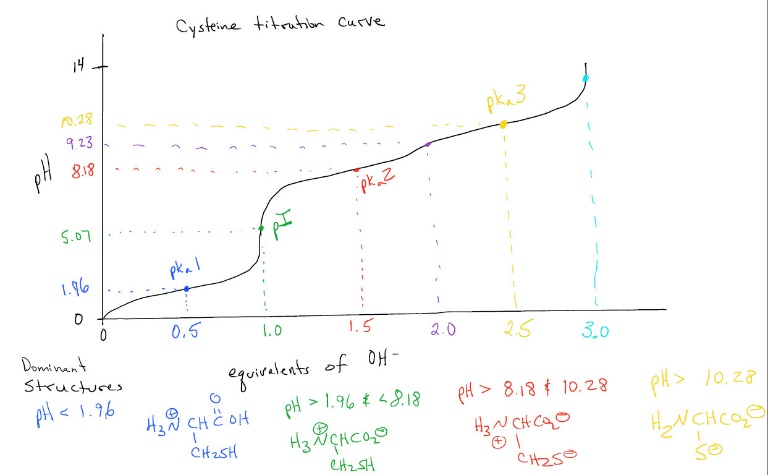 Cysteine titration curve
14
10.28
9.23
8.18
5.07
1.96
0
pH
pka3
pka2
pI
pka1
0 0.5 1.0 1.5 2.0 2.5 3.0
equivalents of OH-
Dominant
Structures
pH < 1.96
O
H3N⊕ CH C OH
CH2SH
pH > 1.96 & < 8.18
H3N⊕ CHCO2⊖
CH2SH
pH > 8.18 & 10.28
H3N⊕ CHCO2⊖
CH2S⊖
pH > 10.28
H2N CHCO2⊖
S⊖